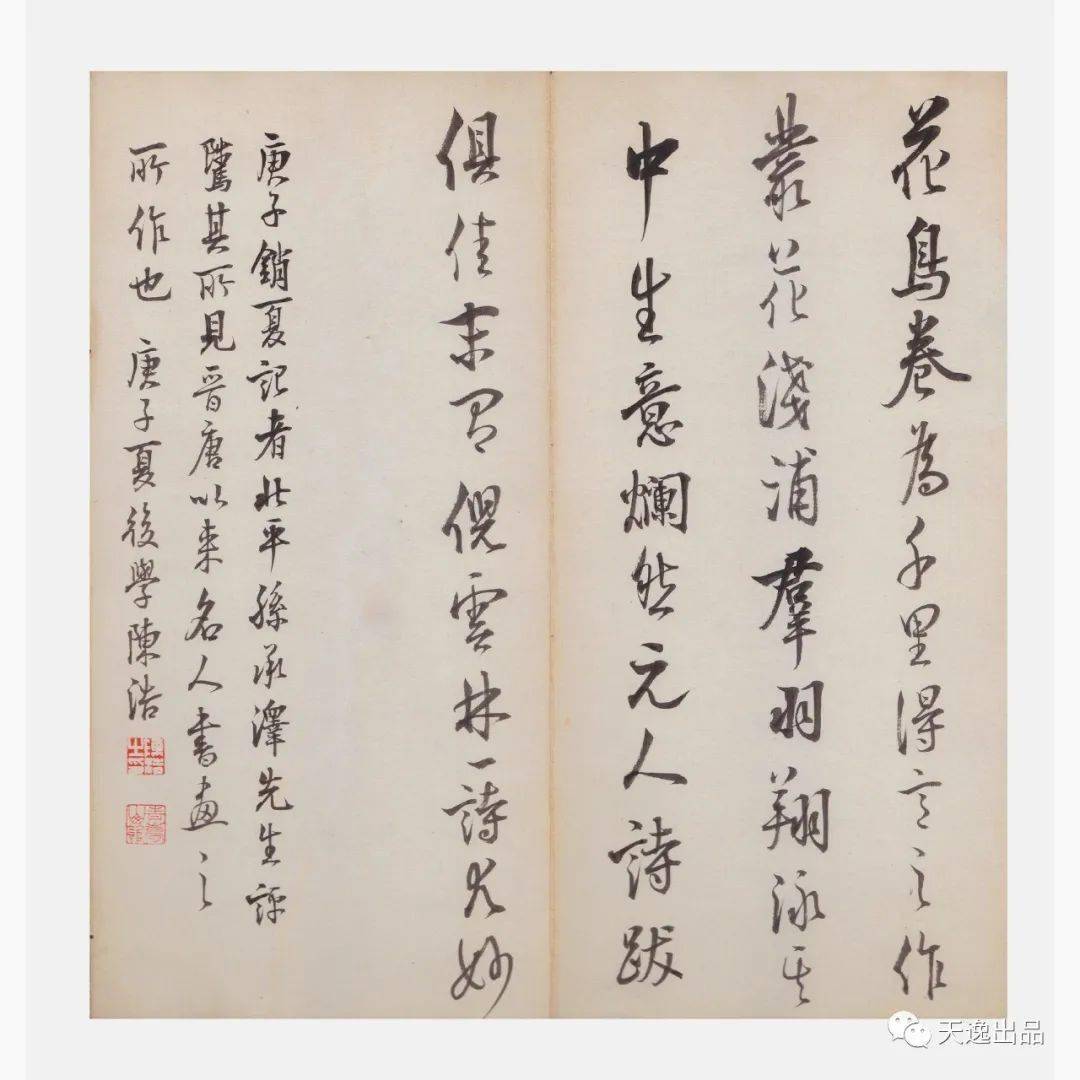 花鳥卷為千里得意之作
叢花淺浦羣羽翔泳其
中生意爛然元人詩跋
俱佳末有倪雲林一詩尤妙
庚子銷夏記者北平孫承澤先生評
隲其所見晉唐以来名人書畫之
所作也 庚子夏後學陳浩
天逸出品